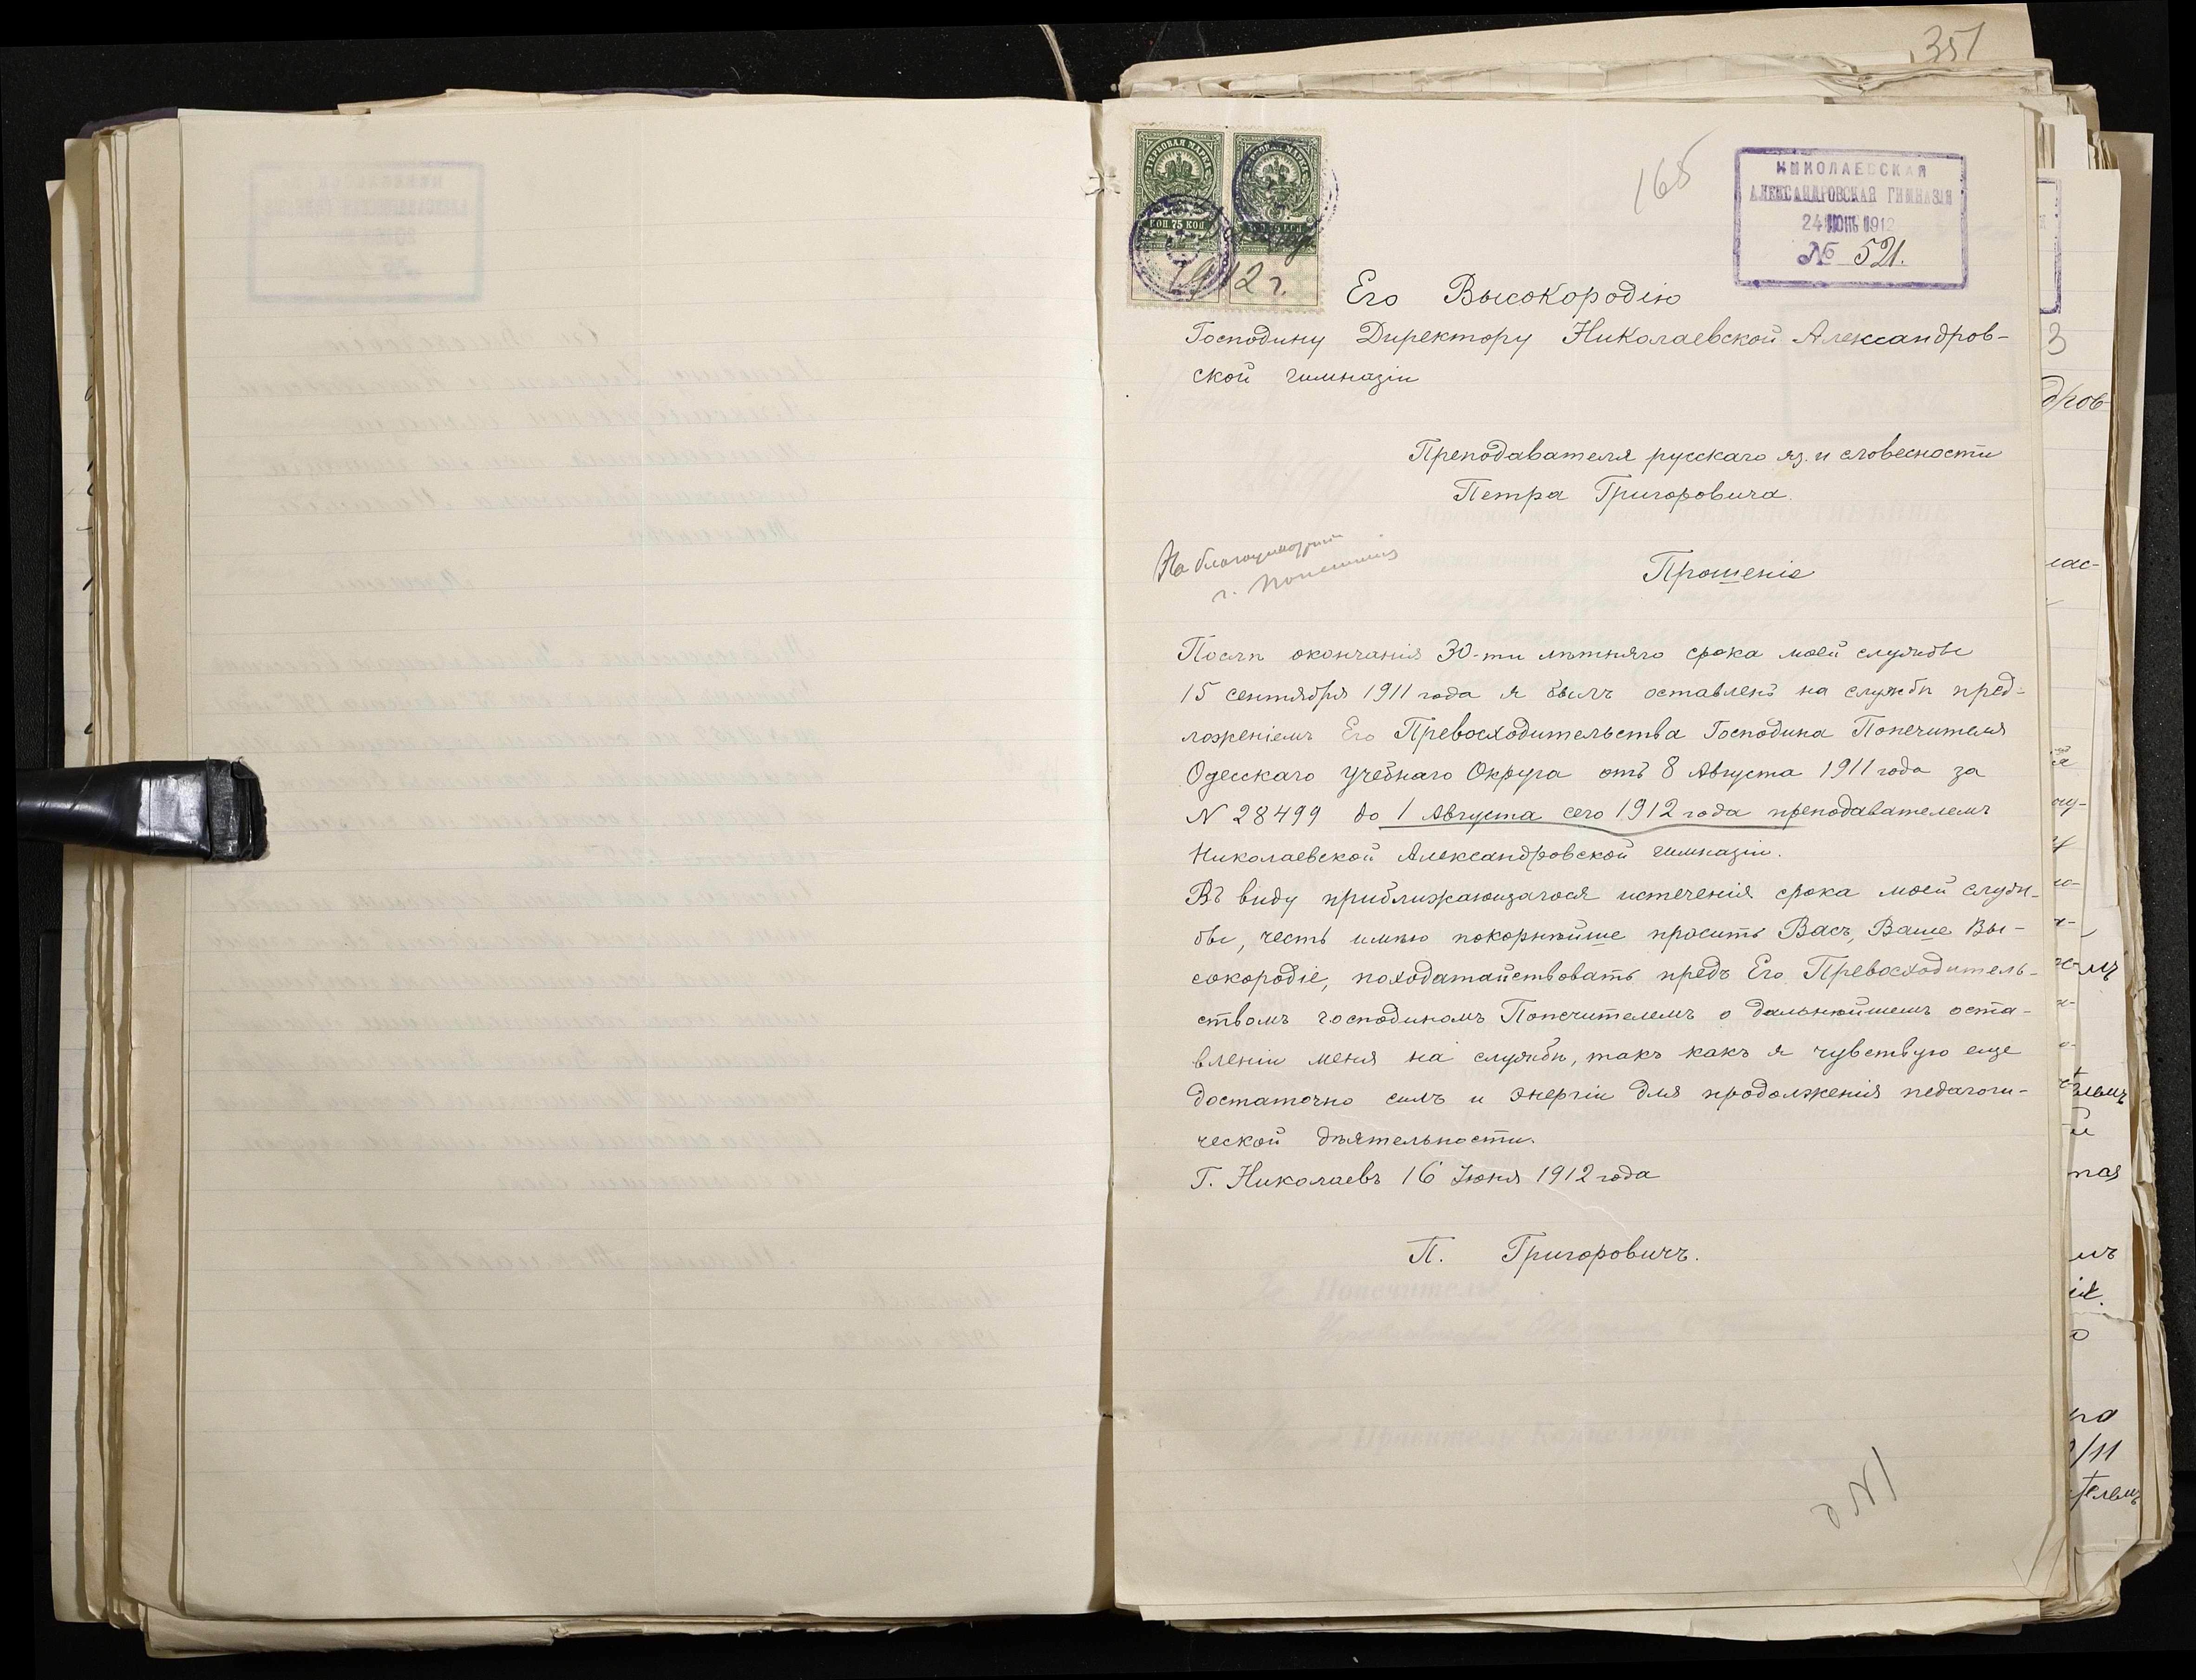 351
165
НИКОЛАЕВСКАЯ
АЛЕКСАНДРОВСКАЯ ГИМНАЗІЯ
24 ІЮН 1912
№ 521.
ГЕРБОВАЯ МАРКА
ГЕРБОВАЯ МАРКА
КОП 75 КОП
1912 г.
Его Высокородію
Господину Директору Николаевской Александров-
ской гимназіи
Преподавателя русскаго яз. и словесности
Петра Григоровича.
На благоусмотрѣніе
г. Попечителя
Прошеніе
Послѣ окончанія 30-ти лѣтняго срока моей службы
15 сентября 1911 года я былъ оставленъ на службѣ пред-
ложеніемъ Его Превосходительства Господина Попечителя
Одесскаго Учебнаго Округа отъ 8 Августа 1911 года за
N 28499 до 1 Августа сего 1912 года преподавателемъ
Николаевской Александровской гимназіи.
Въ виду приближающагося истеченія срока моей служ-
бы, честь имѣю покорнѣйше просить Васъ, Ваше Вы-
сокородіе, походатайствовать предъ Его Превосходитель-
ствомъ господиномъ Попечителемъ о дальнѣйшемъ оста-
вленіи меня на службѣ, такъ какъ я чувствую еще
достаточно силъ и энергіи для продолженія педагоги-
ческой дѣятельности.
Г. Николаевъ 16 Іюня 1912 года
П. Григоровичъ.